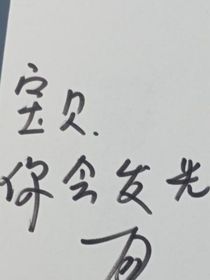 宝贝.
你会发光